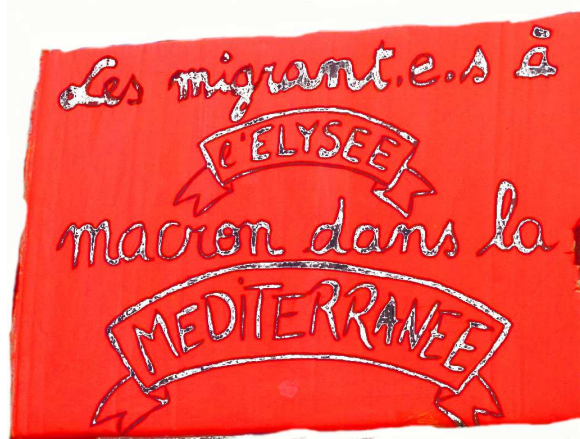 Les migrant.e.s à
l'ELYSEE
macron dans la
MEDiTERRANEE